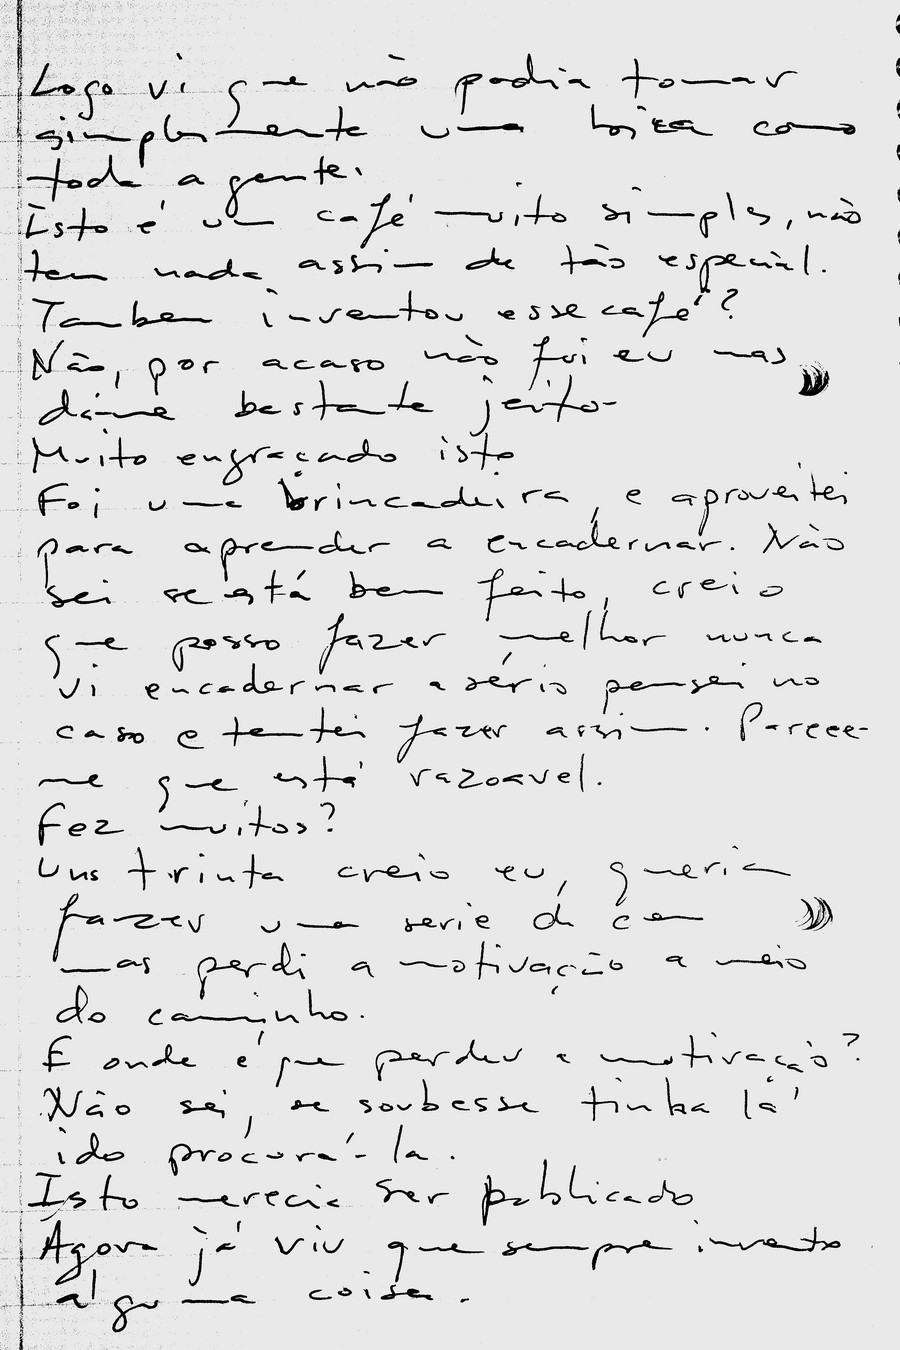 Logo vi que não podia tomar
simplesmente uma bica como
toda a gente.
Isto é um café muito simples, não
tem nada assim de tão especial.
Tambem inventou esse café?
Não, por acaso não fui eu mas
dá-me bastante jeito
Muito engraçado isto
Foi uma brincadeira, e aproveitei
para aprender a encadernar. Não
sei se está bem feito, creio
que posso fazer melhor nunca
vi encadernar a sério pensei no
caso e tentei fazer assim. Parece-
me que está razoavel.
Fez muitos?
Uns trinta creio eu, queria
fazer uma serie de cem
mas perdi a motivação a meio
do caminho.
E onde é que perdeu a motivação?
Não sei, se soubesse tinha lá
ido procurá-la.
Isto merecia ser publicado
Agora já viu que sempre invento
alguma coisa.